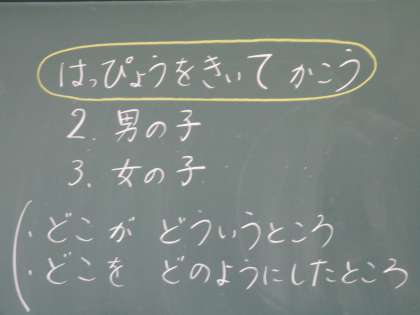 はっぴょうをきいて かこう
2. 男の子
3. 女の子
・どこが どういうところ
・どこを どのようにしたところ